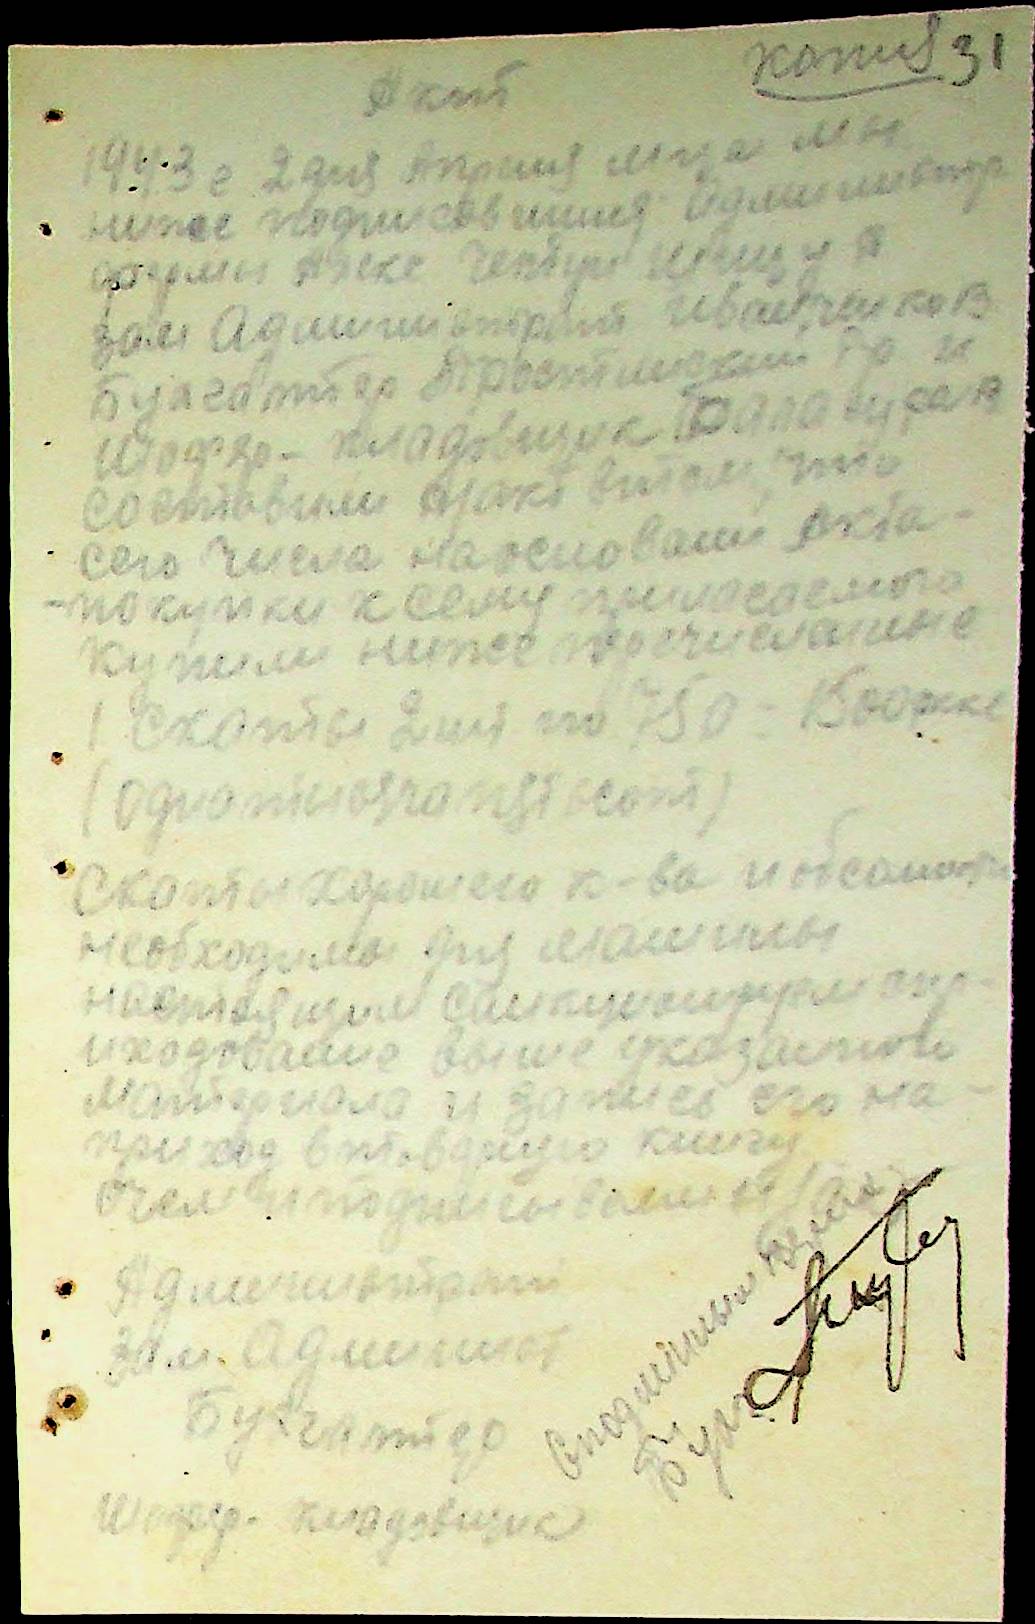 копия 31
Акт
1943 г 2 дня Апреля м-ца мы
ниже подписавшиеся Администр
фермы
зам Администрат Иванченко В
Бухгалтер и
Шофер - кладовщик Балануца В
составили акт в том, что
сего числа на основании акта-
-покупки к сему прилагаемого
купили ниже перечисленные
1 Скаты 2 шт по 750 -
(одна тысяча пятьсот)
Скаты хорошего к-ва и
необходимы для машины
настоящим санкционируем опр-
иходование выше указанного
материала и запись его на-
приход в товарную книгу
О чем и подписываемся
Администрат
Зам. Админист
Бухгалтер
Шофер - кладовщик
С подлинным верно
Бухг.